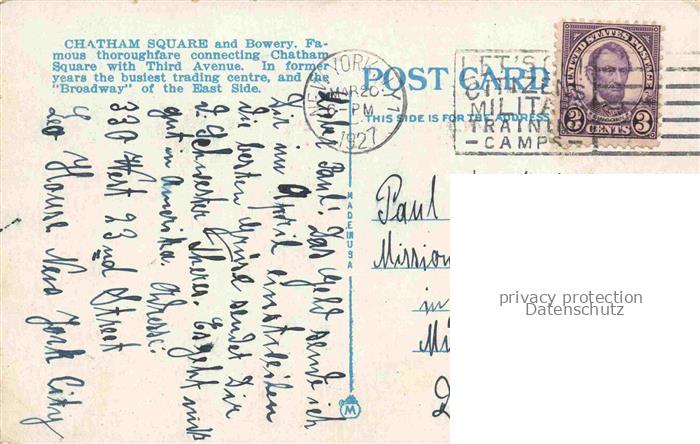 CHATHAM SQUARE and Bowery. Fa-
mous thoroughfare connecting Chatham
Square with Third Avenue. In former
years the busiest trading centre, and the
"Broadway" of the East Side.
POST CARD
THIS SIDE IS FOR THE ADDRESS
NEW YORK, N.Y.
MAR 26
6 PM
1927
LET'S GO
CITIZENS
MILITA
TRAINI
-CAMPS-
UNITED STATES POSTAGE
3 CENTS 3
Paul! Das Geld sende ich
Dir im April einschreiben
Die besten Grüße sendet Dir
d. Schwester Theres. Es geht mir
gut in Amerika. Adresse:
330 West 23nd Street
Leo House New York City
MADE IN USA
M
Paul
Mission
in
Mü
privacy protection
Datenschutz